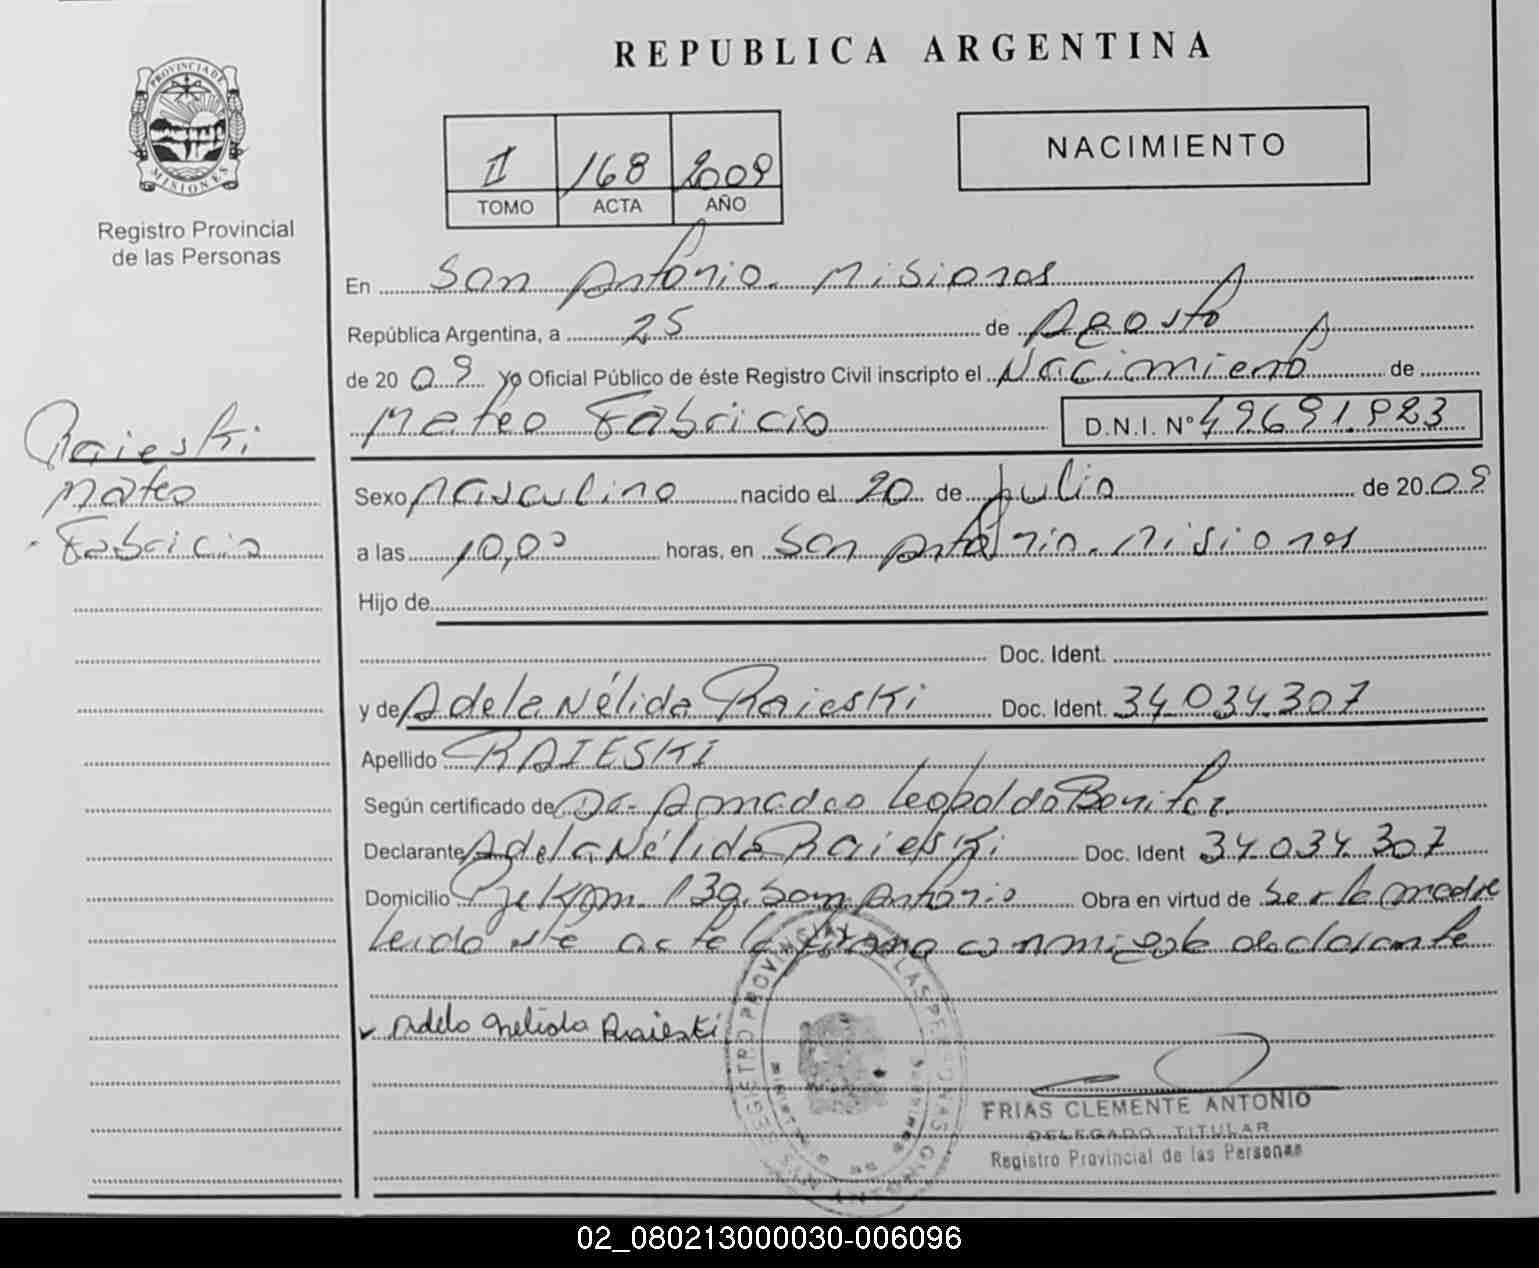 REPUBLICA ARGENTINA
PROVINCIA DE
MISIONES
Registro Provincial
de las Personas
II 168 2009
TOMO ACTA AÑO
NACIMIENTO
En San Antonio. Misiones
República Argentina, a 25 de Agosto
de 2009 Yo Oficial Público de éste Registro Civil inscripto el Nacimiento de
Mateo Fabricio D.N.I. Nº 49.691.923
Raieski
Mateo
Fabricio
Sexo Masculino nacido el 20 de Julio de 2009
a las 10,00 horas, en San Antonio. Misiones
Hijo de
Doc. Ident.
y de Adela Nélida Raieski Doc. Ident. 34.034.307
Apellido RAIESKI
Según certificado de Dr. Amadeo Leopoldo Benitez
Declarante Adela Nélida Raieski Doc. Ident 34.034.307
Domicilio Pje Km. 130. San Antonio Obra en virtud de Ser la madre
Leido este acta la firma conmigo la declarante
Adela Nelida Raieski
REGISTRO PROVINCIAL DE LAS PERSONAS
SAN ANTONIO
FRIAS CLEMENTE ANTONIO
DELEGADO TITULAR
Registro Provincial de las Personas
02_080213000030-006096